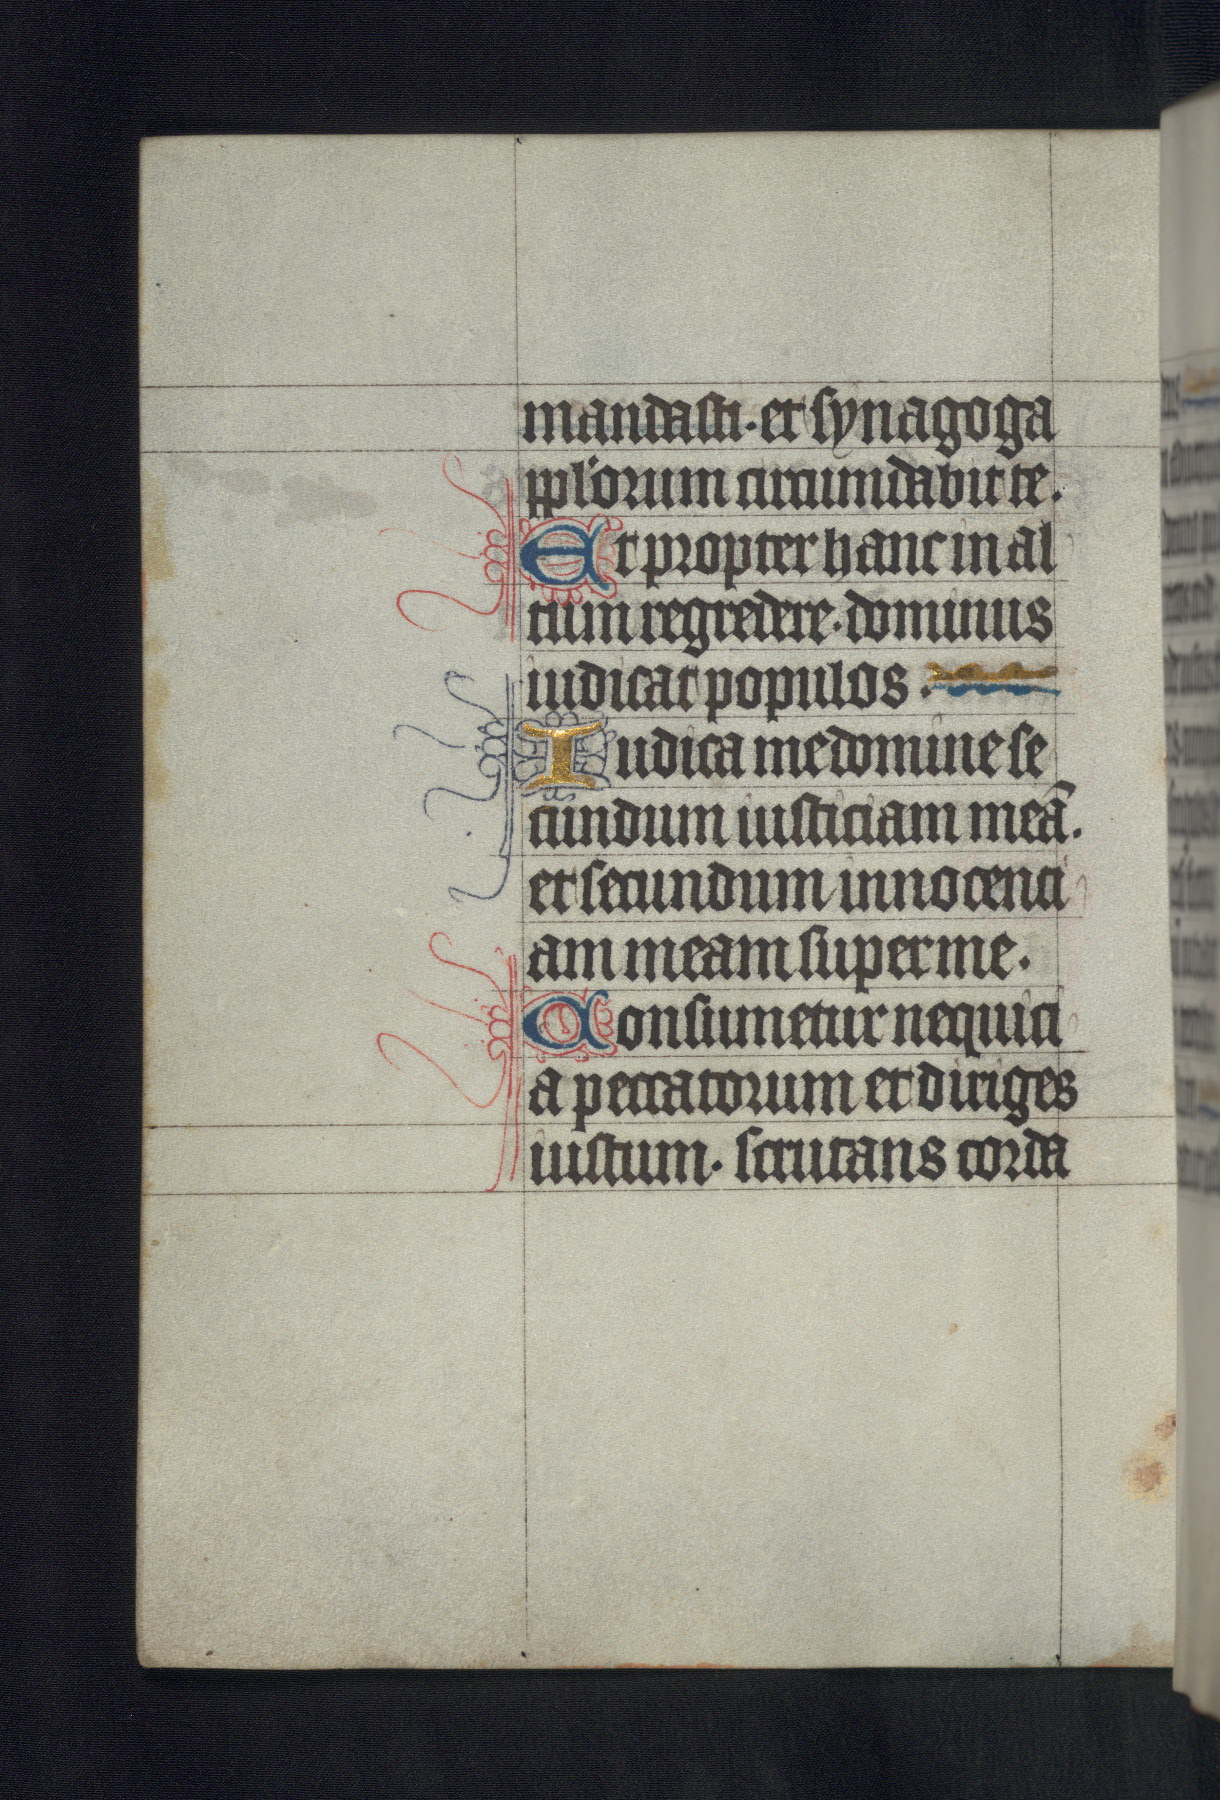 mandasti. et synagoga
pplorum circumdabit te.
Et propter hanc in al
tum regredere. dominus
iudicat populos.
Iudica me domine se
cundum iusticiam meã.
et secundum innocenci
am meam super me.
Consumetur nequici
a peccatorum et diriges
iustum. scrutans corda